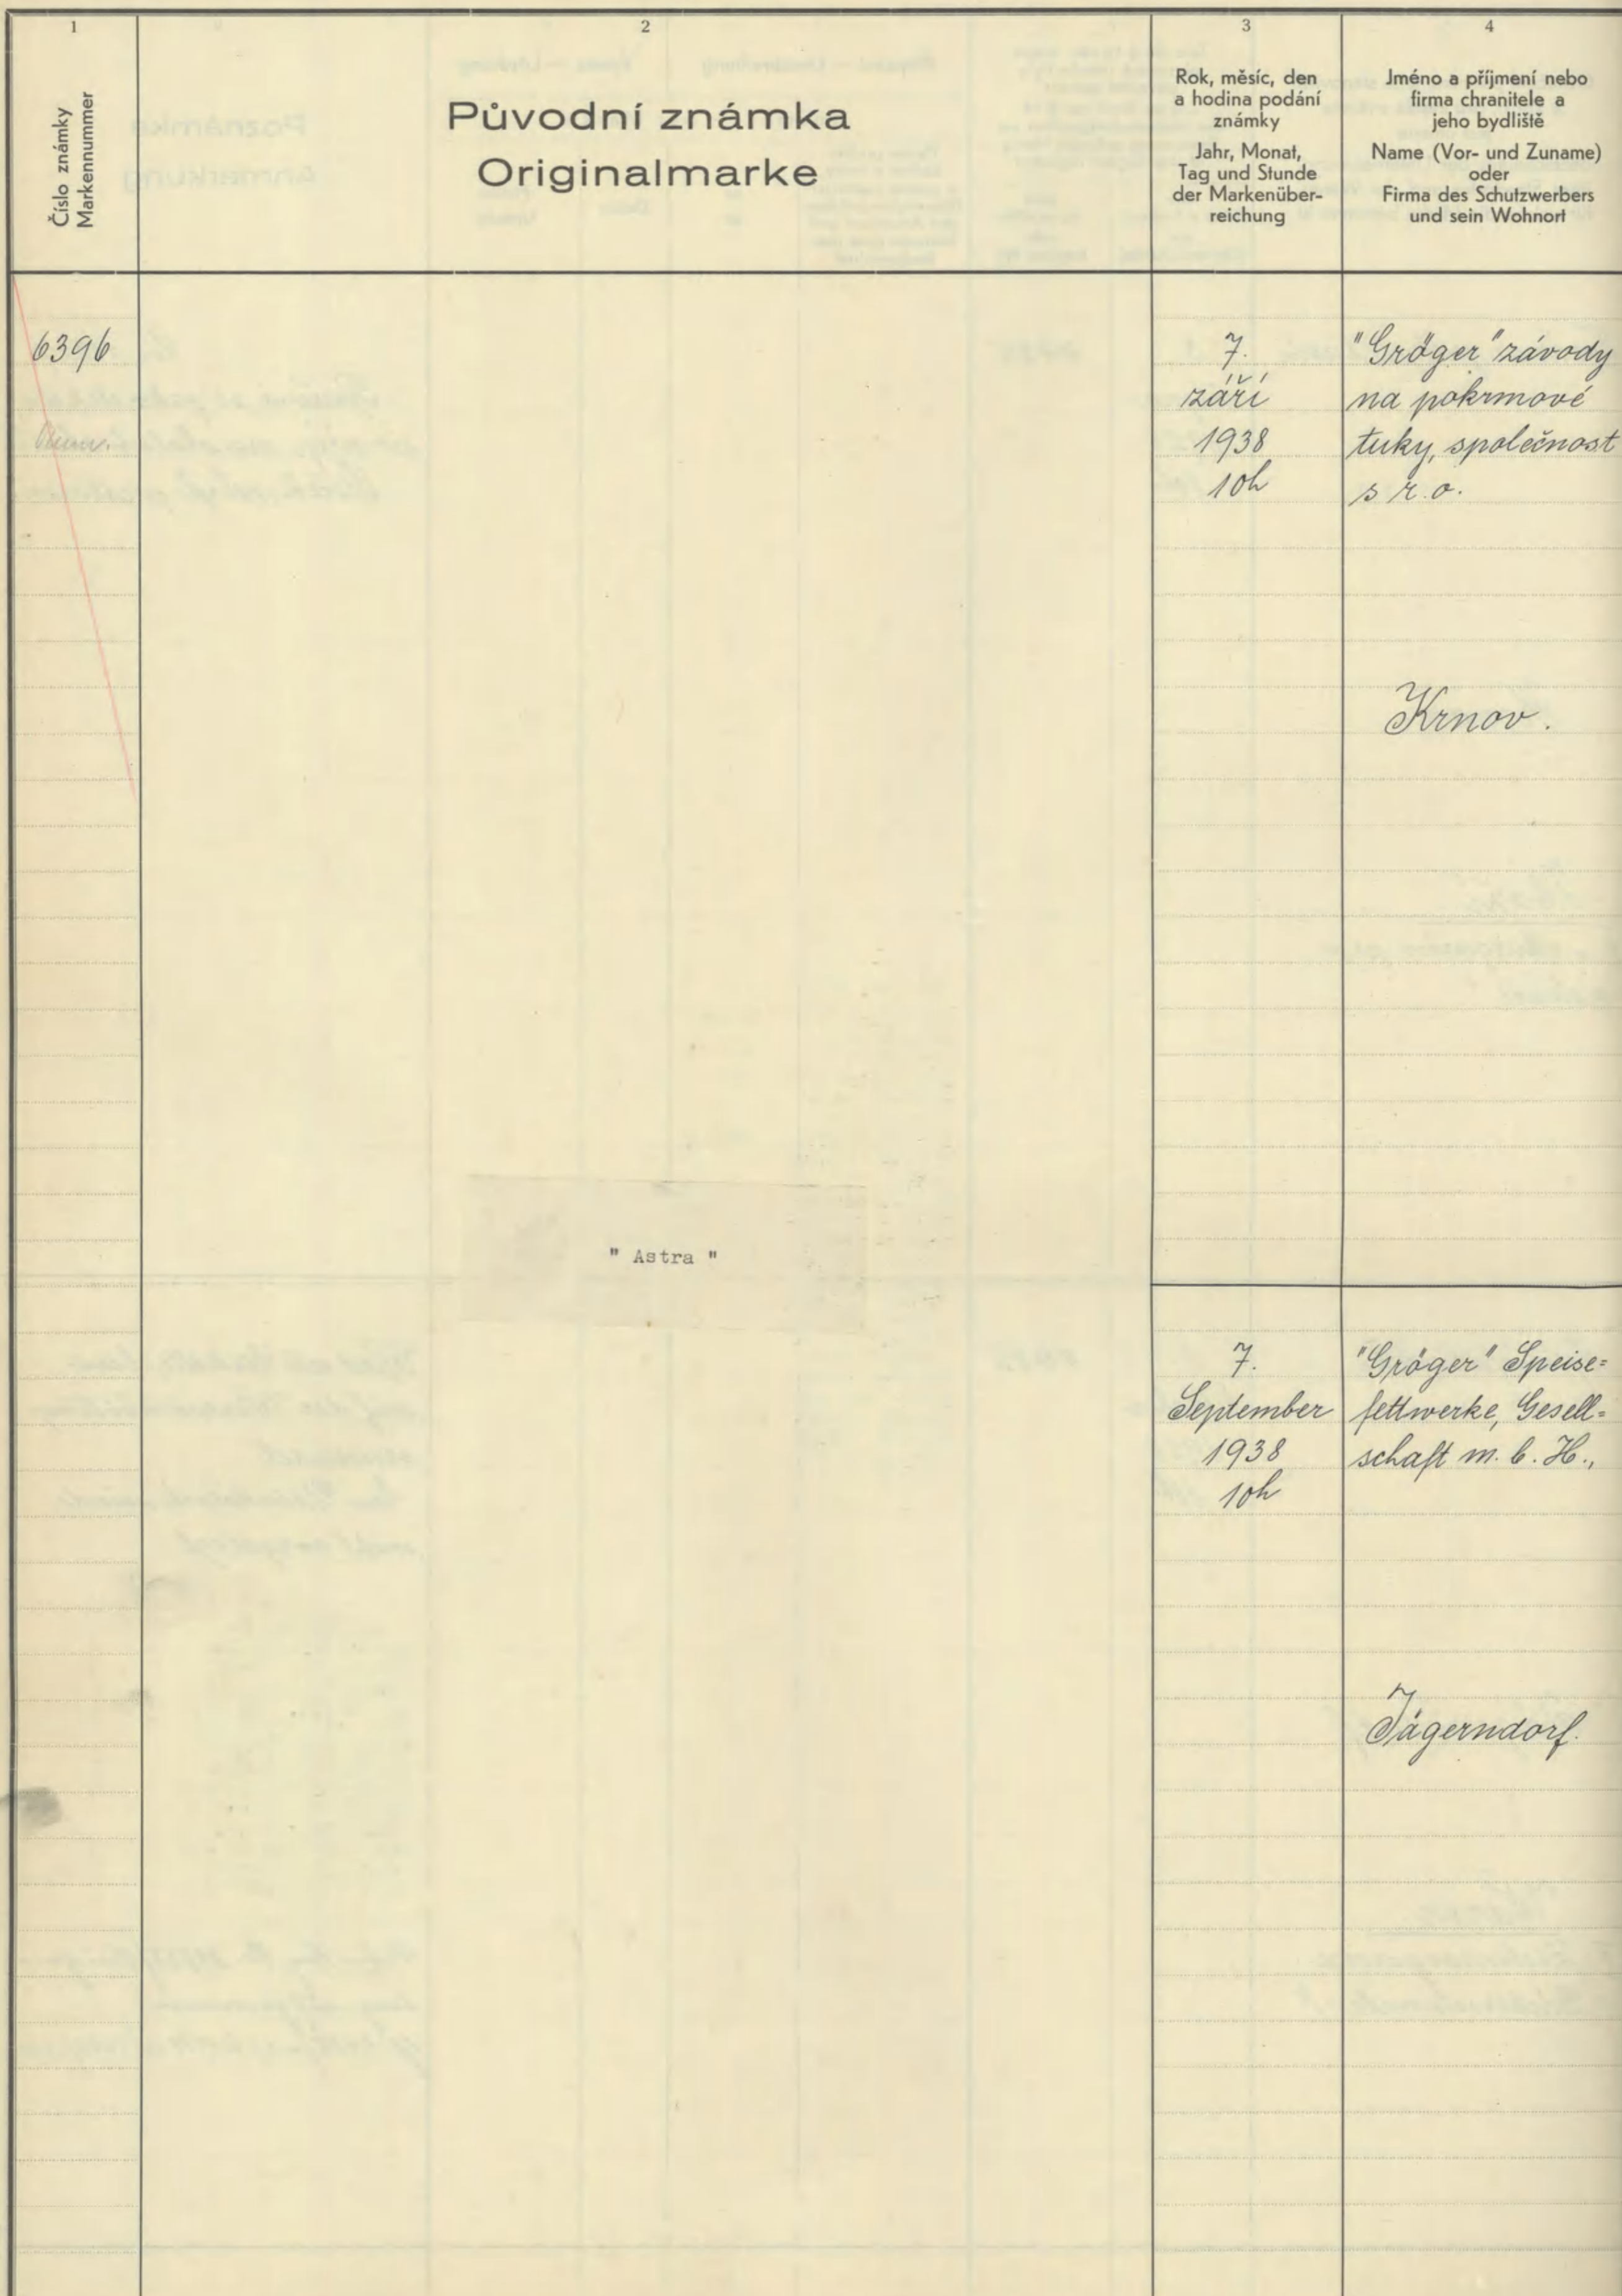 1
Číslo známky
Markennummer
2
Původní známka
Originalmarke
3
Rok, měsíc, den
a hodina podání
známky
Jahr, Monat,
Tag und Stunde
der Markenüber-
reichung
4
Jméno a příjmení nebo
firma chranitele a
jeho bydliště
Name (Vor- und Zuname)
oder
Firma des Schutzwerbers
und sein Wohnort
6396
7.
září
1938
10h
"Gröger" závody
na pokrmové
tuky, společnost
s r. o.
Krnov.
" Astra "
7.
September
1938
10h
"Gröger" Speise=
fettwerke, Gesell=
schaft m. b. H.,
Jägerndorf.